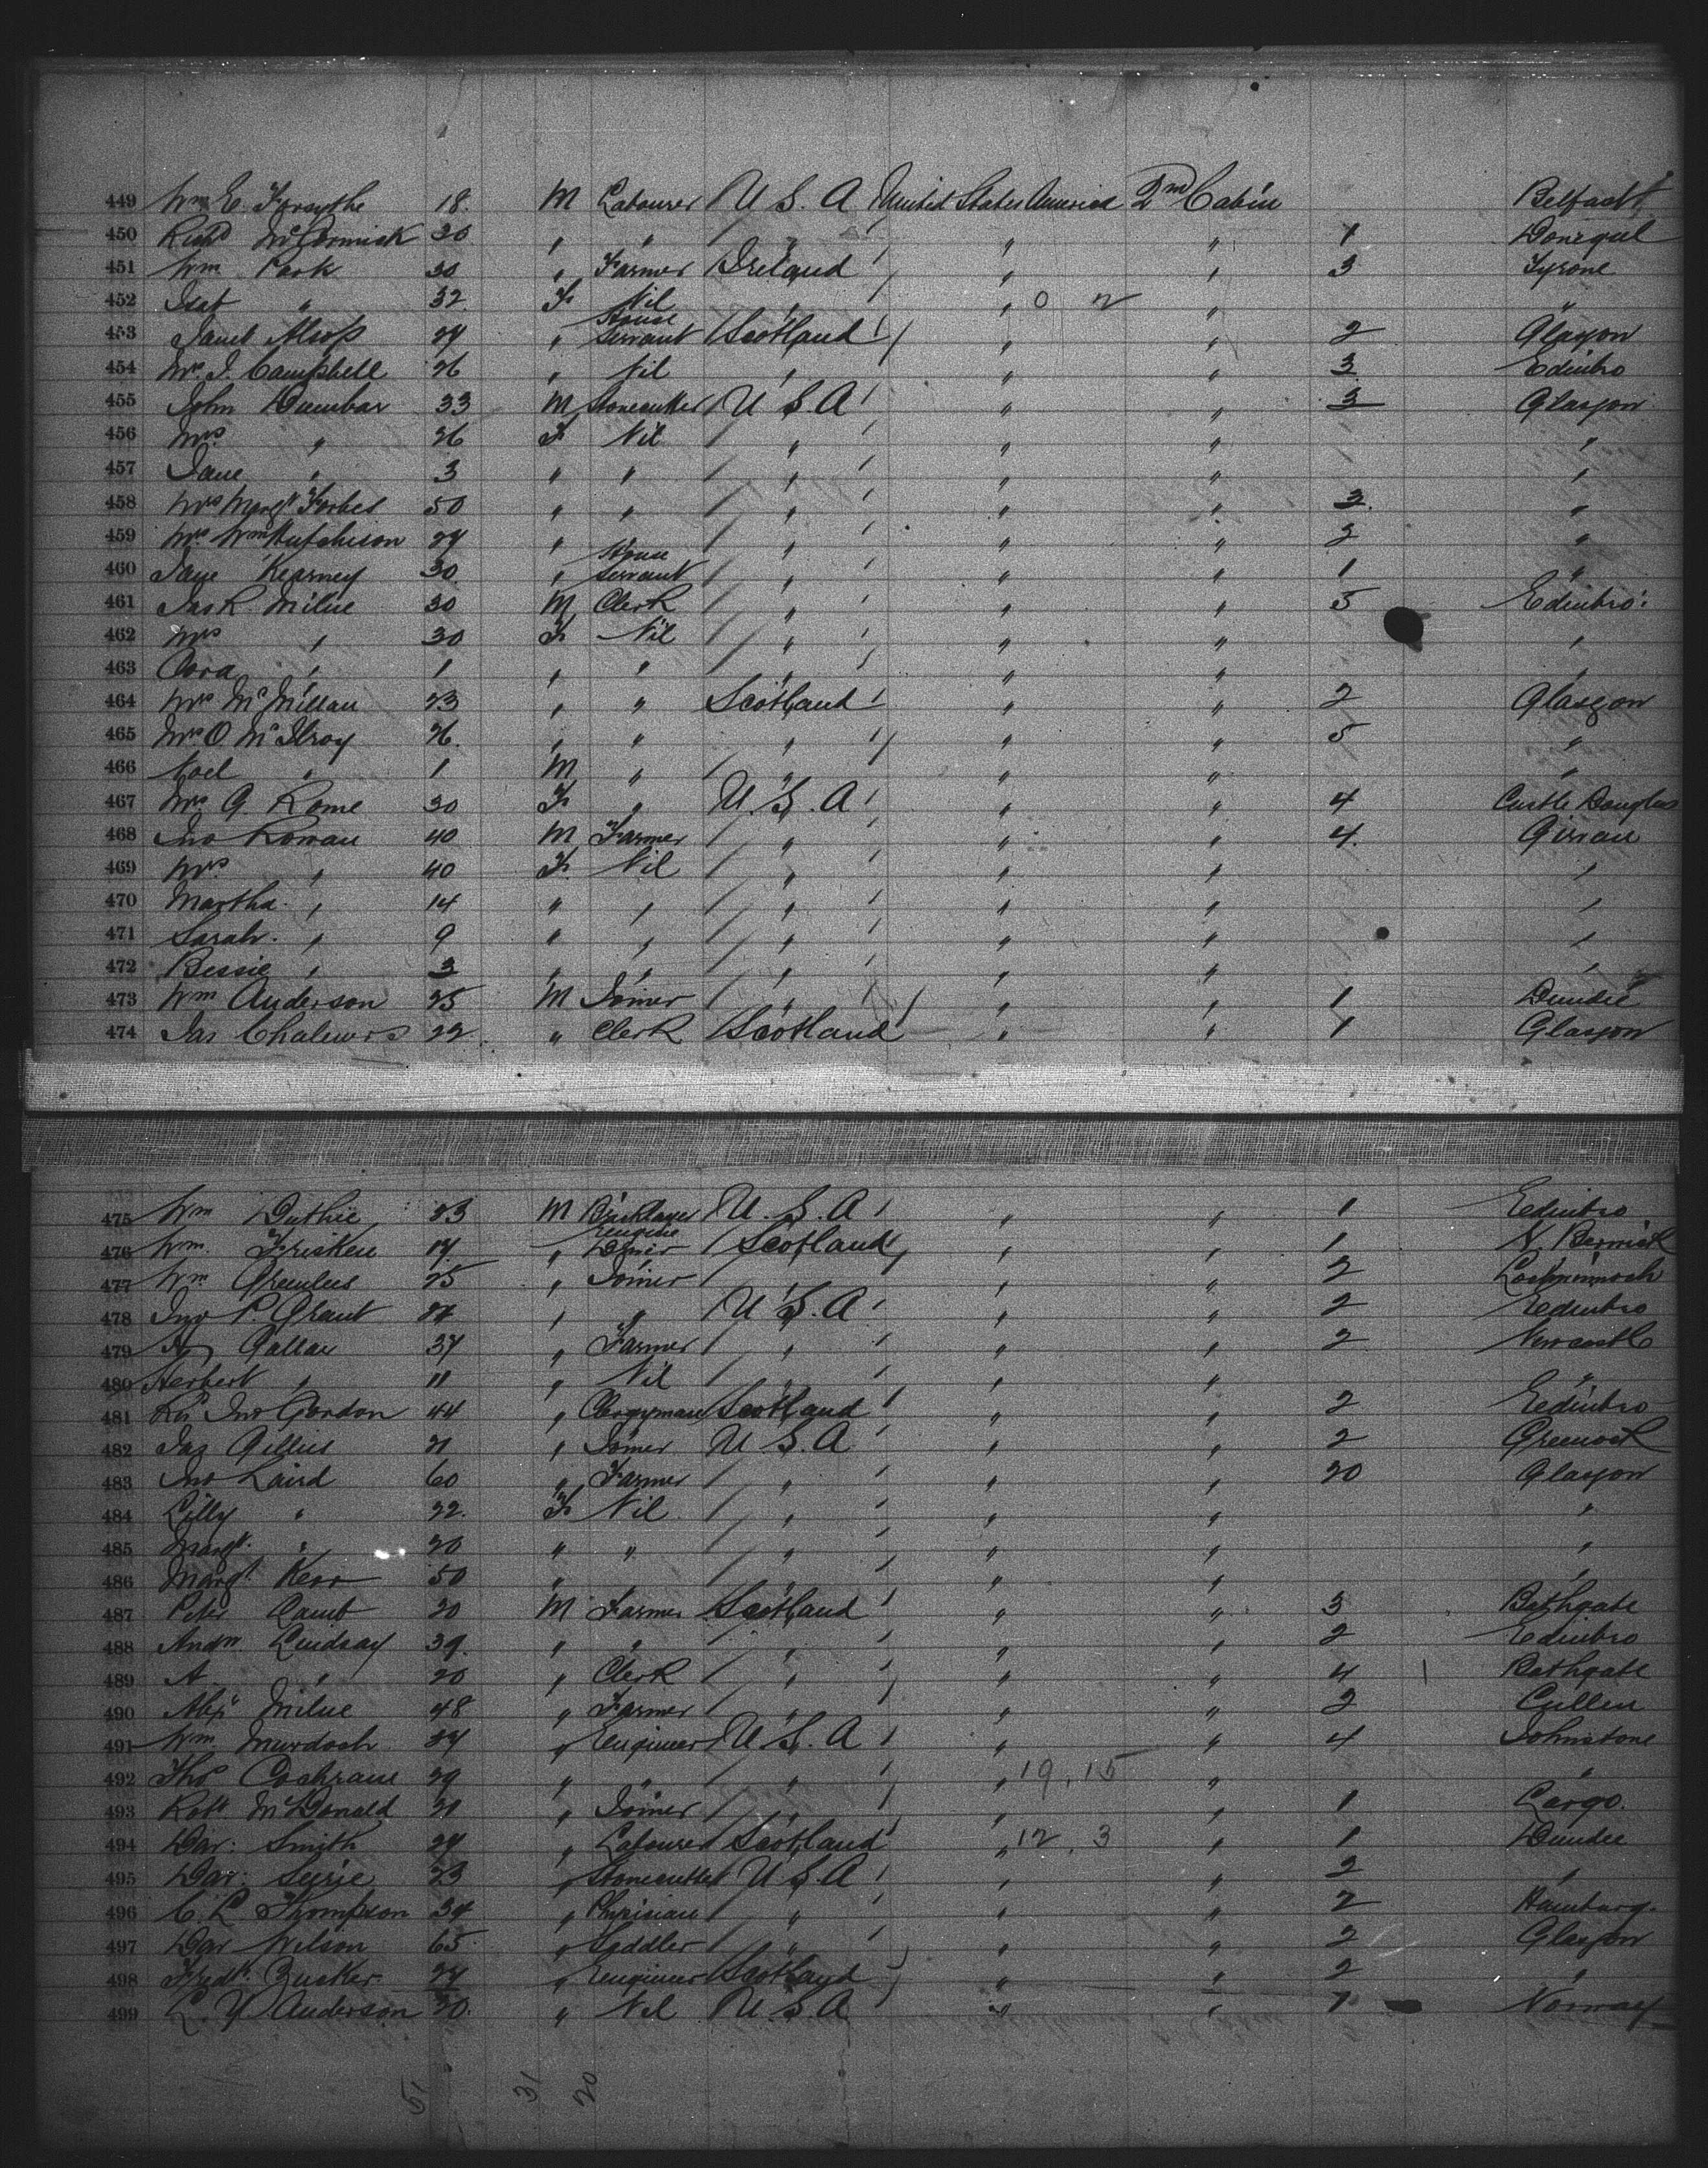 449 Wm E. Forsythe 18. M Labourer U. S. A United States America 2nd Cabin Belfast
450 Richd McCormick 30 " " " " " 1 Donegal
451 Wm Park 30 " Farmer Ireland " " 3 Tyrone
452 Isab " 32 F Nil " " 0 2 " "
453 Janet Alsop 24 " House Servant Scotland " " 2 Glasgow
454 Mrs J. Campbell 26 " Nil " " " 3 Edinbro
455 John Dunbar 33 M Stonecutter U S. A " " 3 Glasgow
456 Mrs " 26 F Nil " " " "
457 Jane " 3 " " " " " "
458 Mrs Margt Forbes 50 " " " " " 3 "
459 Mrs Wm Hutchison 24 " " " " 2 "
460 Jane Kearney 30 " House Servant " " " 1 "
461 Jas R. Milne 30 M Clerk " " " 5 Edinbro'
462 Mrs " 30 F Nil " " " "
463 Cora " 1 " " " " " "
464 Mrs McMillan 23 " " Scotland " " 2 Glasgow
465 Mrs O McIlroy 26. " " " " " 5 "
466 Noel " 1 M " " " " "
467 Mrs G. Rome 30 F " U. S. A " " 4 Castle Douglas
468 Jno Rowan 40 M Farmer " " " 4. Girvan
469 Mrs " 40 F. Nil " " " "
470 Martha " 14 " " " " " "
471 Sarah " 9 " " " " " "
472 Bessie " 3 " " " " " "
473 Wm Anderson 25 M Joiner " " " 1 Dundee
474 Jas Chalmers 22. " Clerk Scotland " " 1 Glasgow
475 Wm Duthie 23 M Bricklayer U. S. A " " 1 Edinbro
476 Wm. Frisken 17. " Engine Driver Scotland " " 1 N. Berwick
477 Wm Greenlees 25 " Joiner " " 2 Lochwinnoch
478 Jno P. Grant " " U S. A " " 2 Edinbro
479 Gallau 37 " Farmer " " " 2 Newcastle
480 Herbert " 11 " Nil " " " "
481 Rev Jno Gordon 44 " Clergyman Scotland " " 2 Edinbro
482 Jas Gillies 21 " Joiner U S. A " " 2 Greenock
483 Jno Laird 60 " Farmer " " " 20 Glasgow
484 Lilly " 22. F Nil " " " "
485 Margt. " 20 " " " " " "
486 Margt Kerr 50 " " " " "
487 Peter Lamb 20 M Farmer Scotland " " 3 Bathgate
488 Andw Lindsay 39. " " " " " 2 Edinbro
489 A " 20 " Clerk " " " 4 Bathgate
490 Alexr Milne 48 " Farmer " " " 2 Cullen
491 Wm Murdoch 34 " Engineer U S. A " " 4 Johnstone
492 Thos Cochrane 29 " " " " 19, 15 " "
493 Robt McDonald 21 " Joiner " " " 1 Largo.
494 Dav: Smith 24 " Labourer Scotland " 12, 3 " 1 Dundee
495 Dav: 23 " Stonecutter U S. A " " 2 "
496 C. L. Thompson 34 " Phyisian " " " 2 Hamburg.
497 Dav Wilson 65 " Saddler " " " 2 Glasgow
498 Fredk. Zucker 24 " Engineer Scotland " " 2 "
499 L. Y. Anderson 20. " Nil U. S. A " " 1 Norway
51 31 20